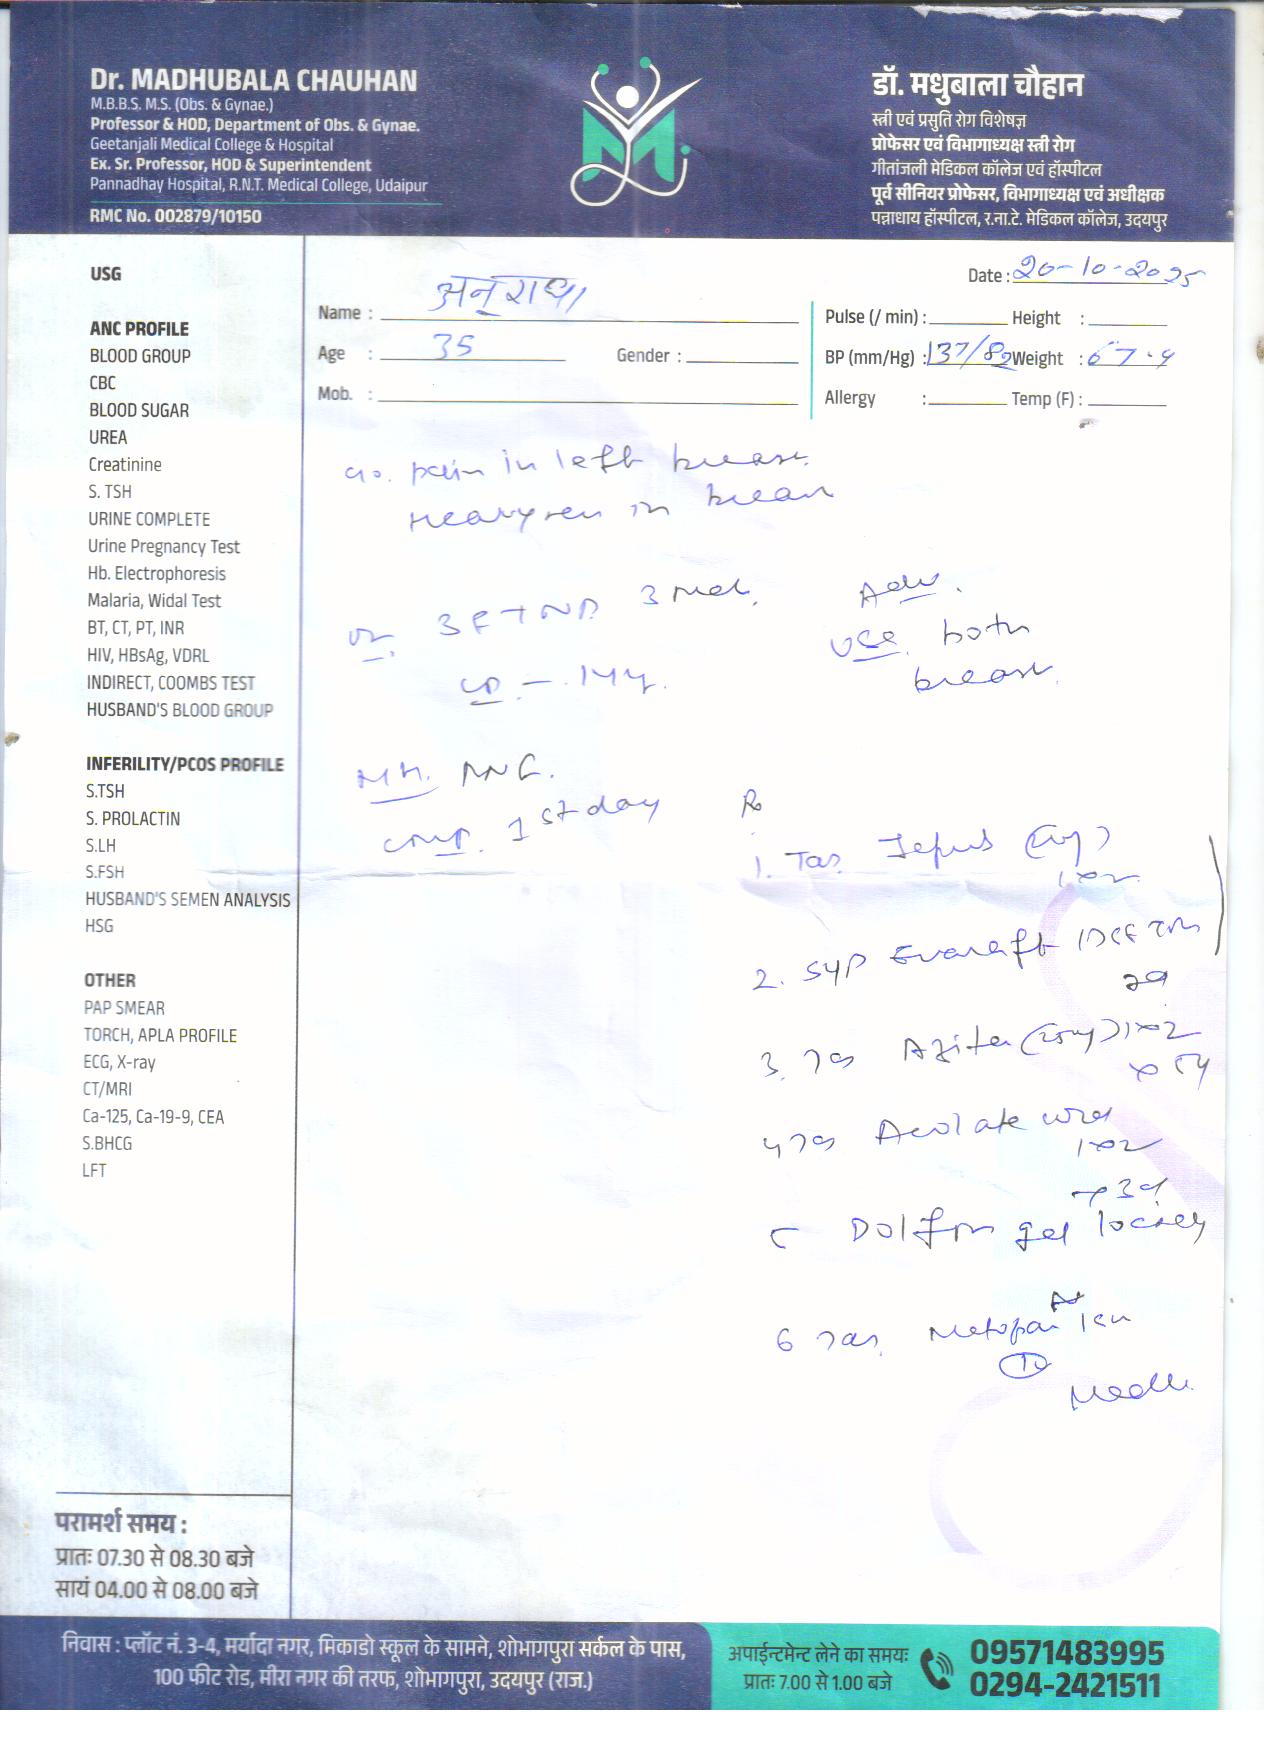 Dr. MADHUBALA CHAUHAN
M.B.B.S. M.S. (Obs. & Gynae.)
Professor & HOD, Department of Obs. & Gynae.
Geetanjali Medical College & Hospital
Ex. Sr. Professor, HOD & Superintendent
Pannadhay Hospital, R.N.T. Medical College, Udaipur
RMC No. 002879/10150
डॉ. मधुबाला चौहान
स्त्री एवं प्रसुति रोग विशेषज्ञ
प्रोफेसर एवं विभागाध्यक्ष स्त्री रोग
गीतांजली मेडिकल कॉलेज एवं हॉस्पीटल
पूर्व सीनियर प्रोफेसर, विभागाध्यक्ष एवं अधीक्षक
पन्नाधाय हॉस्पीटल, र.ना.टे. मेडिकल कॉलेज, उदयपुर
USG
ANC PROFILE
BLOOD GROUP
CBC
BLOOD SUGAR
UREA
Creatinine
S. TSH
URINE COMPLETE
Urine Pregnancy Test
Hb. Electrophoresis
Malaria, Widal Test
BT, CT, PT, INR
HIV, HBsAg, VDRL
INDIRECT, COOMBS TEST
HUSBAND'S BLOOD GROUP
INFERILITY/PCOS PROFILE
S.TSH
S. PROLACTIN
S.LH
S.FSH
HUSBAND'S SEMEN ANALYSIS
HSG
OTHER
PAP SMEAR
TORCH, APLA PROFILE
ECG, X-ray
CT/MRI
Ca-125, Ca-19-9, CEA
S.BHCG
LFT
Date : 20-10-2025
Name : अनुराधा
Pulse (/ min) : Height :
Age : 35 Gender :
BP (mm/Hg) : 137/82 Weight : 67.4
Mob. :
Allergy : Temp (F) :
pain in left breast.
in breast
3 FTND 3
Adv.
both
breast.
MH.
1st day
Rx
1. Tab
2. Syp
3. Tab
1x2
4 Tab
1x2
x 3d
5 gel locally
6 Tab.
परामर्श समय :
प्रातः 07.30 से 08.30 बजे
सायं 04.00 से 08.00 बजे
निवास : प्लॉट नं. 3-4, मर्यादा नगर, मिकाडो स्कूल के सामने, शोभागपुरा सर्कल के पास,
100 फीट रोड, मीरा नगर की तरफ, शोभागपुरा, उदयपुर (राज.)
अपाईन्टमेन्ट लेने का समयः
प्रातः 7.00 से 1.00 बजे
09571483995
0294-2421511